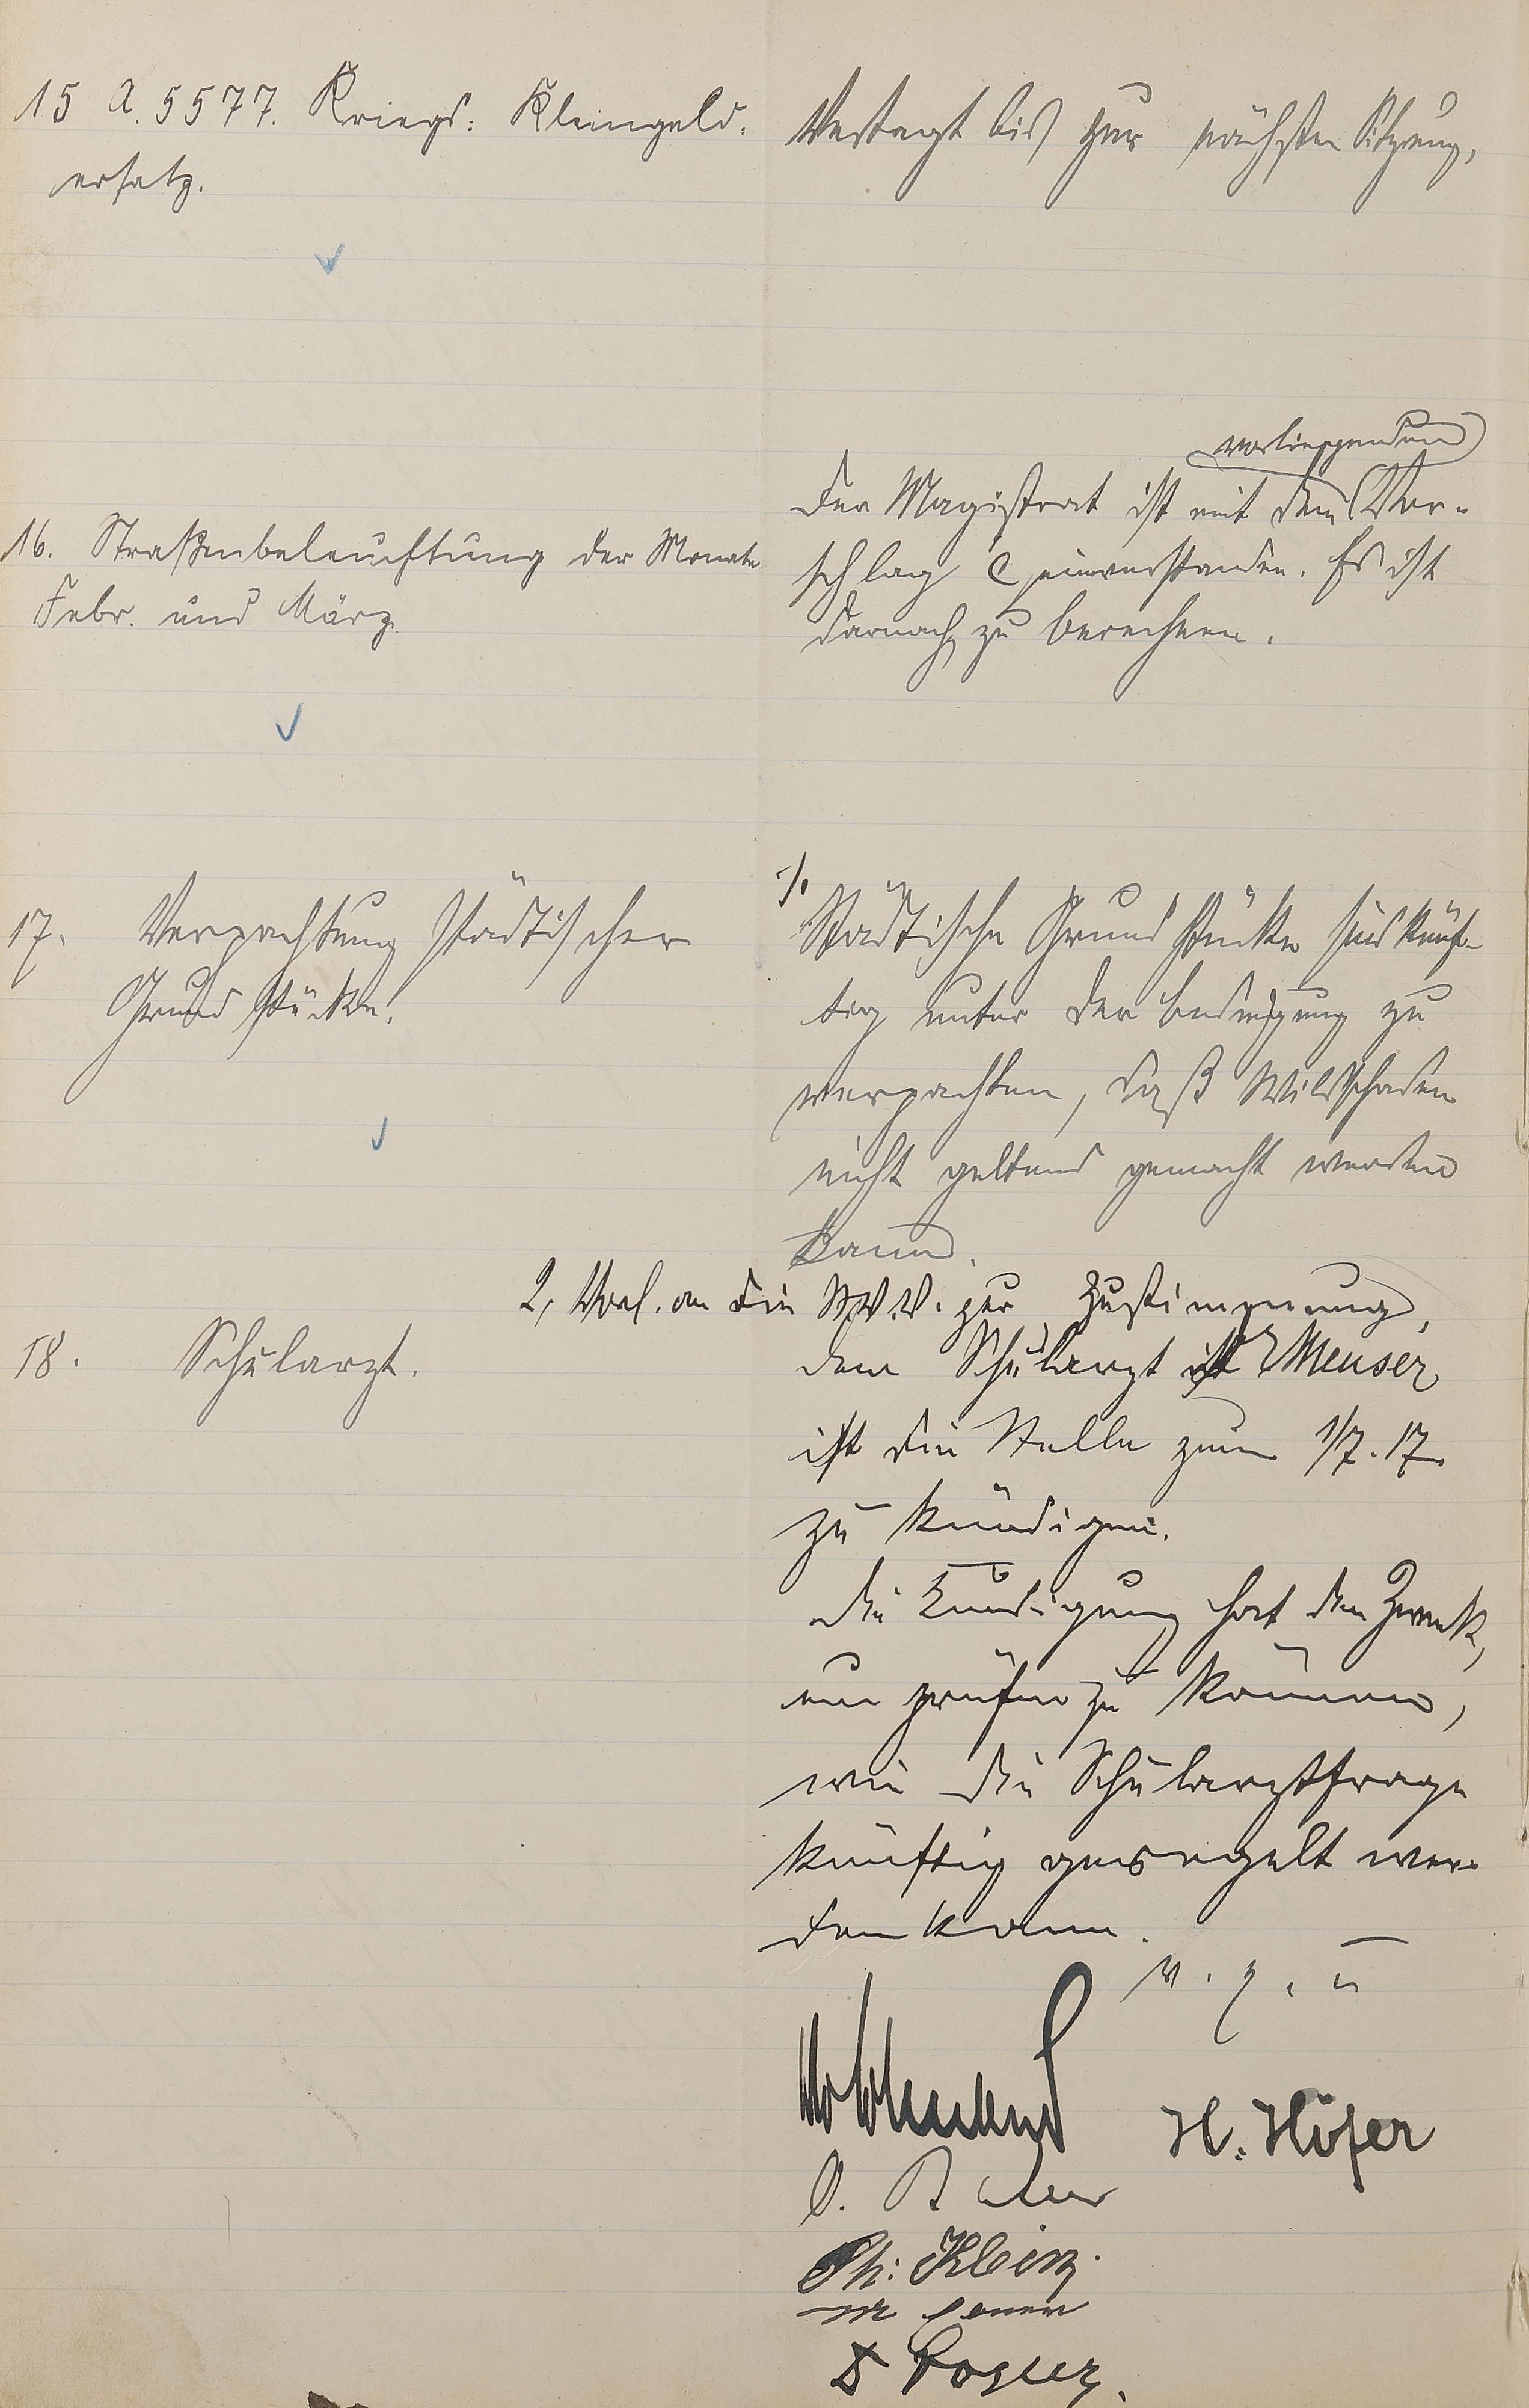 15 A. 5577. Kriegs: Kleingeld.
ersatz.
Vertagt bis zur nächsten Sitzung,
16. Straßenbeleuchtung der Monate
Febr. und März.
vorliegenden
Der Magistrat ist mit dem Vor-
schlag C einverstanden. Es ist
darnach zu berechnen.
17. Verpachtung städtischer
Grundstücke.
1/.
Städtische Grundstücke sind künf-
tig unter der Bedingung zu
verpachten, daß Wildschaden
nicht geltend gemacht werden
kann.
2, Vorl. an die St.V.V. zur Zustimmung,
18. Schularzt.
dem Schularzt Meuser
ist die Stelle zum 1/7.17.
zu kündigen.
die Kündigung hat den Zweck,
um prüfen zu können,
wie die Schularztfrage
künftig geregelt wer-
den kann.
v. g. u
H. Höfer
Ph: Klein